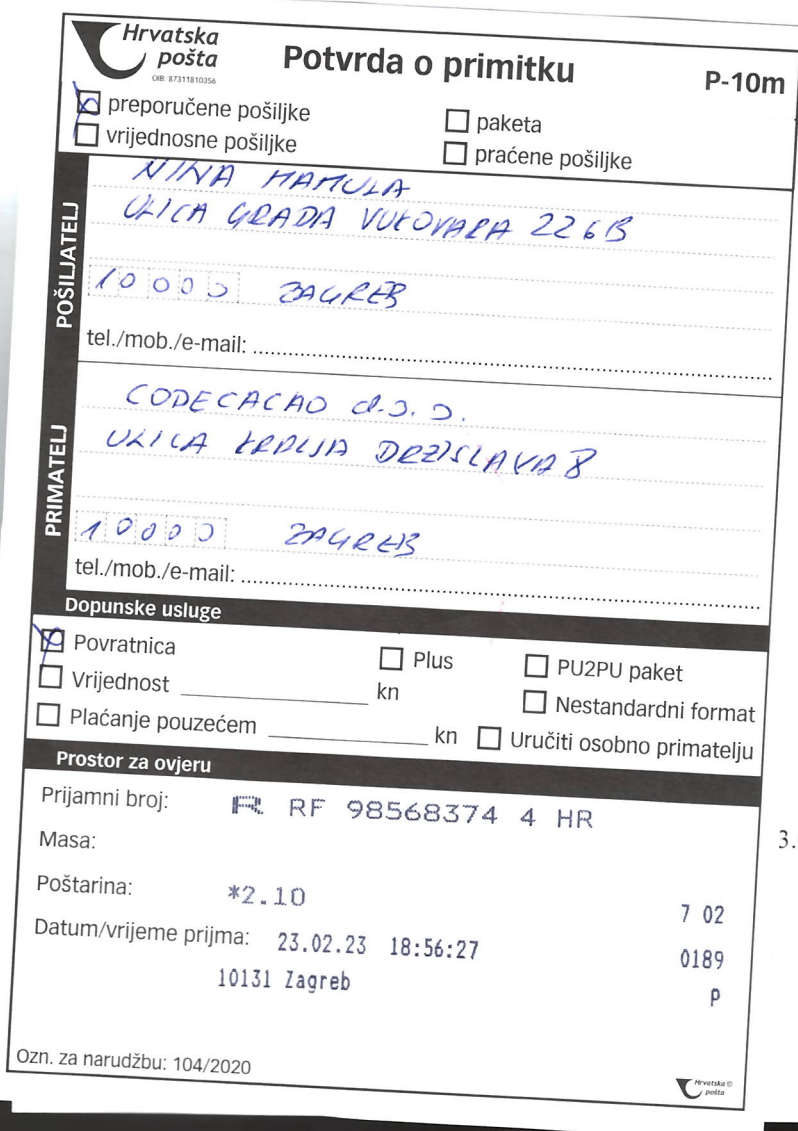 Hrvatska
pošta
OIB: 87311810356
Potvrda o primitku
P-10m
preporučene pošiljke
paketa
vrijednosne pošiljke
praćene pošiljke
POŠILJATELJ
NINA MAMULA
ULICA GRADA VUKOVARA 226B
10000 ZAGREB
tel./mob./e-mail:
PRIMATELJ
CODECACAO d.o.o.
ULICA KRALJA DRZISLAVA 8
10000 ZAGREB
tel./mob./e-mail:
Dopunske usluge
Povratnica
Plus
PU2PU paket
Vrijednost kn
Nestandardni format
Plaćanje pouzećem kn
Uručiti osobno primatelju
Prostor za ovjeru
Prijamni broj: R RF 98568374 4 HR
Masa:
3.
Poštarina: *2.10
7 02
Datum/vrijeme prijma: 23.02.23 18:56:27
0189
10131 Zagreb
P
Ozn. za narudžbu: 104/2020
Hrvatska ©
pošta